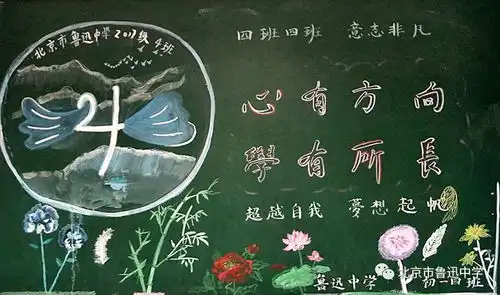 北京市鲁迅中学2017级4班
4
四班四班 意志非凡
心有方向
學有所長
超越自我 夢想起帆
鲁迅中学 初一四班
北京市鲁迅中学